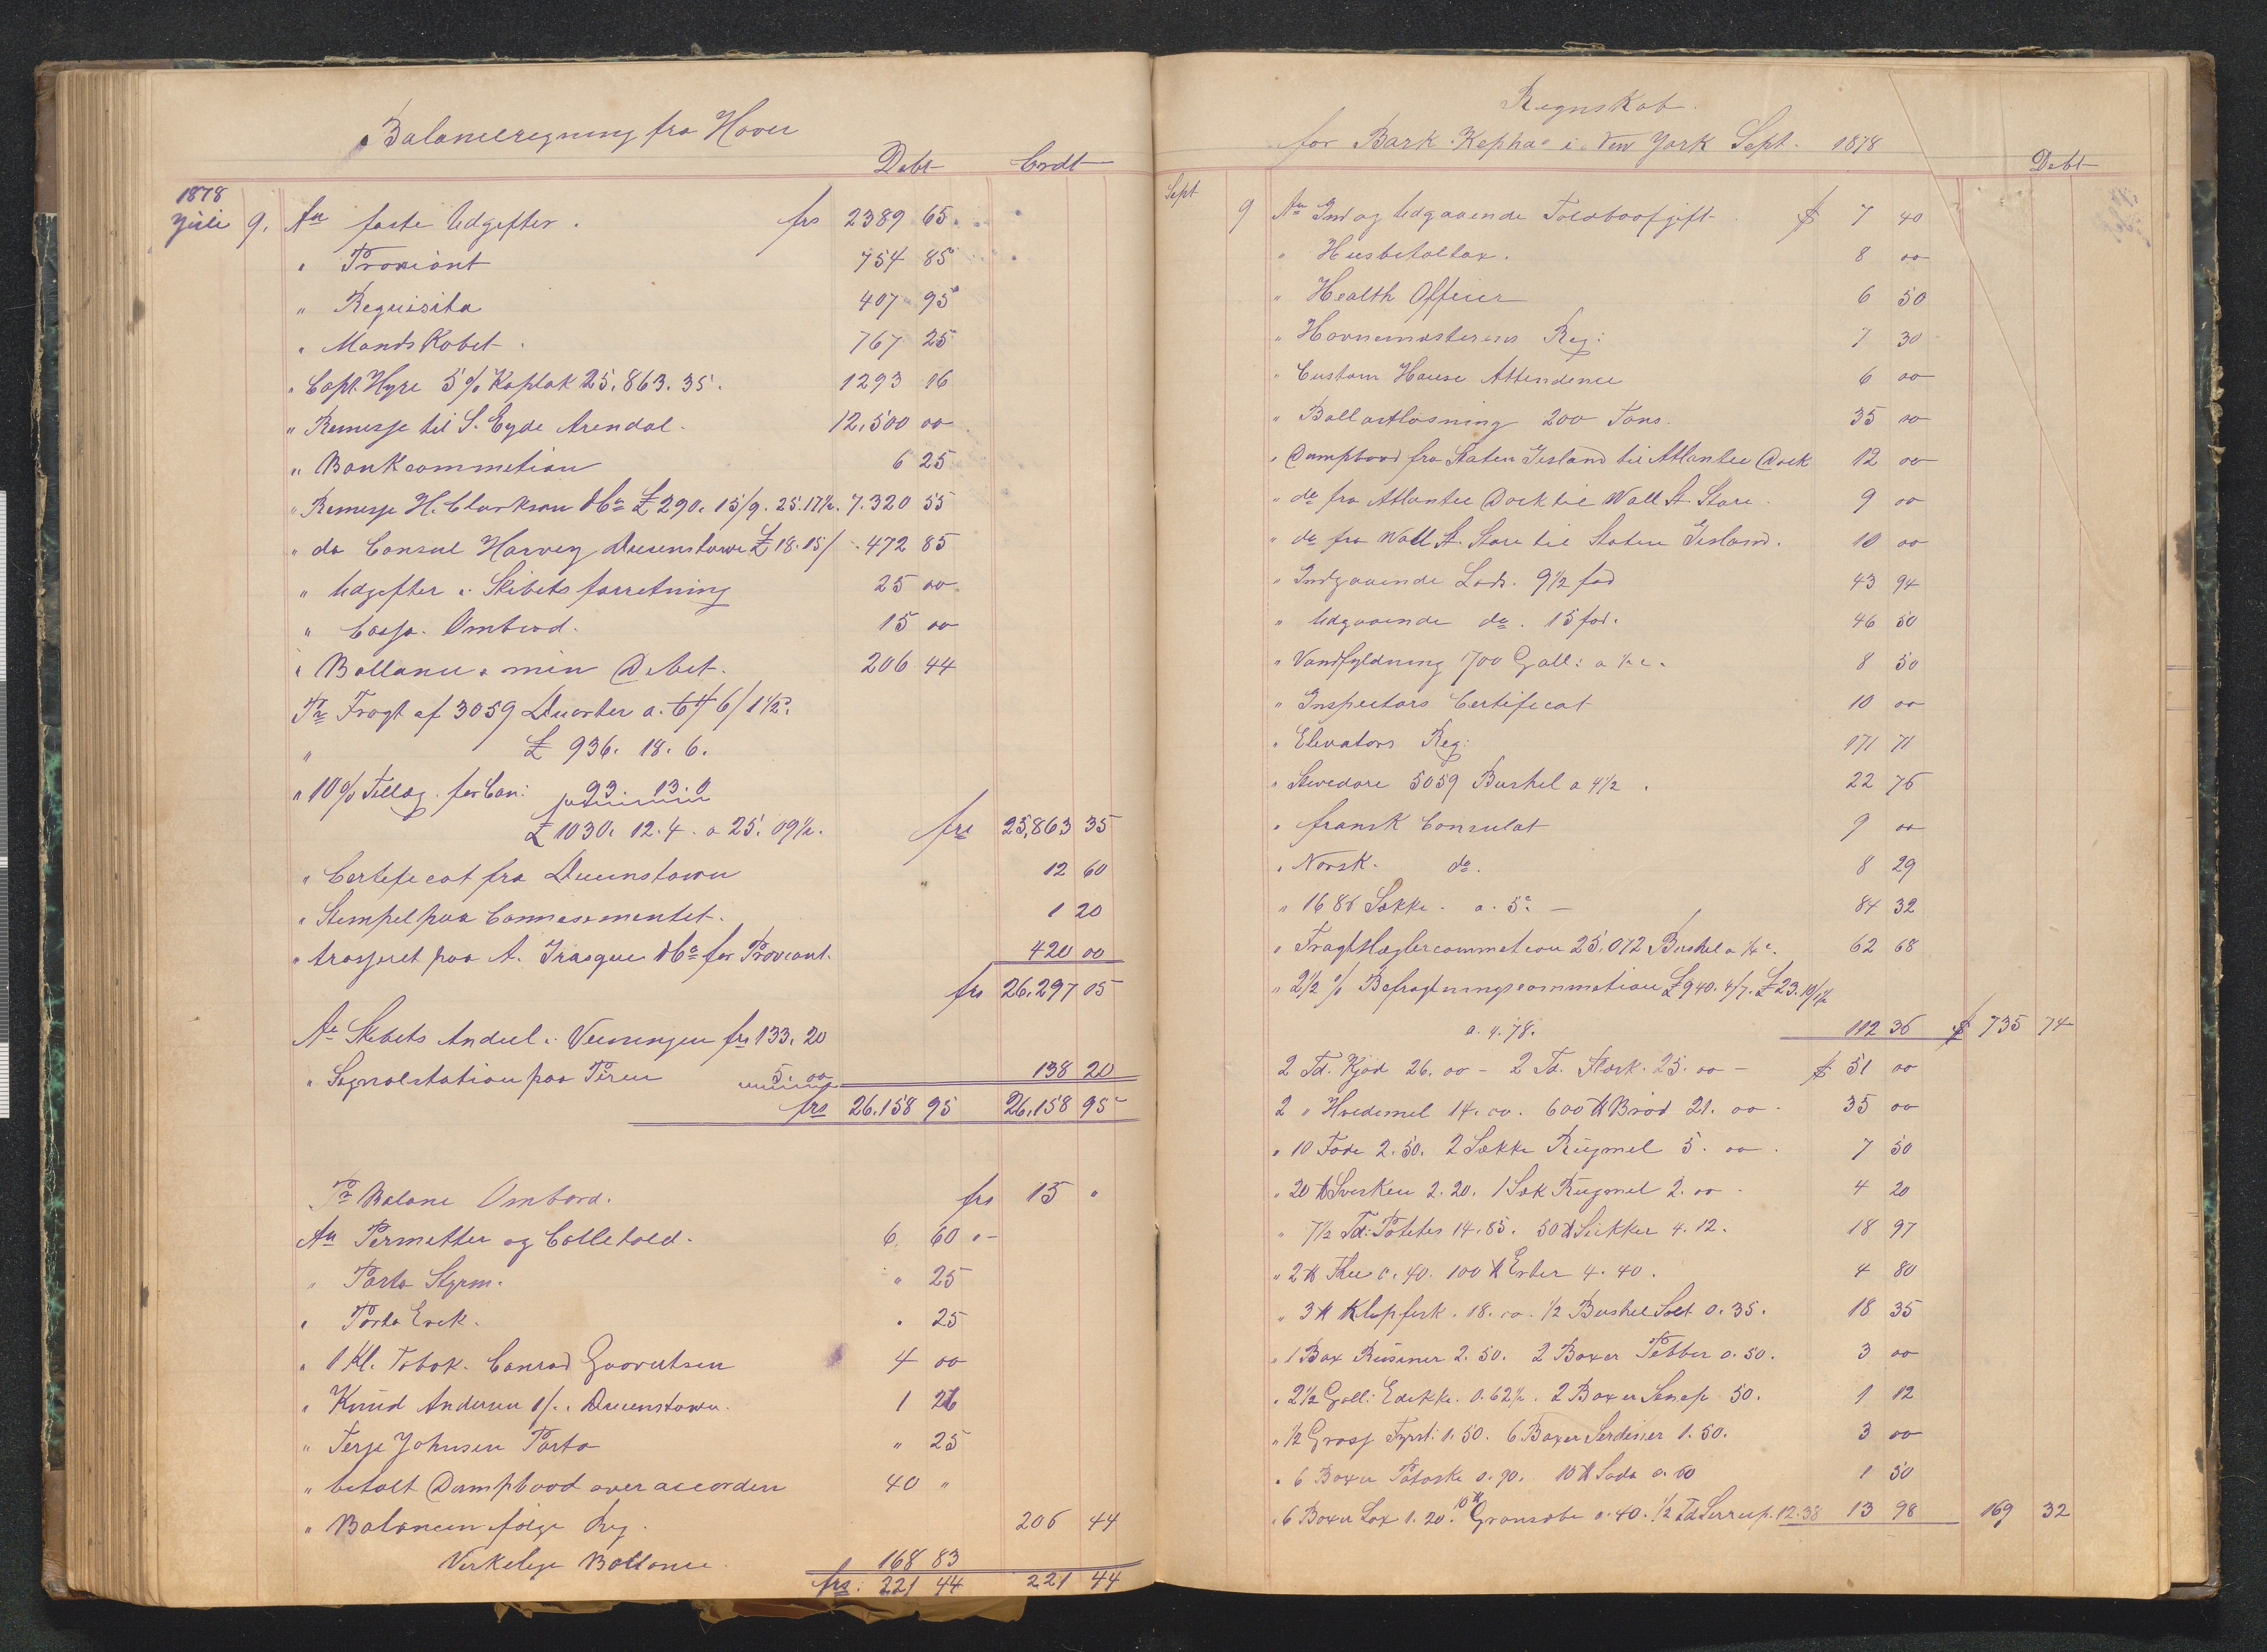 Balanceregning fra Havre
Debt Crdt
1878
Juli 9. An faste Udgifter . frs 2389 65
" Proviant 754 85
" Requisita 407 95
" Mandskabet . 767 25
" Capt. Hyre 5 % Kaplak 25,863. 35. 1293 16
" Remesse til S. Eyde Arendal. 12,500 00
" Bankcommetion 6 25
" Remesse H. Clarkson & Co £ 290. 15/9. 25.17½. 7.320 55
" do Consul Harvey Queenstown £ 18. 15/ 472 85
" Udgifter i Skibets forretning 25 00
" Cassa. Ombord. 15 00
" Ballance min Debet. 206 44
Pr Fragt af 3059 Quarter a. 6/1½
" £ 936. 18. 6.
" 10% Tillæg. for Can: 93. 13. 0
£ 1030. 12. 4. a 25. 09½. frs 25,863 35
" Certificat fra Queenstown 12 60
" Stempel paa Connosementet. 1 20
" trasseret paa A. Irasque & Co for Proviant. 420 00
frs 26,297 15
An Skibets Andeel i Vecningen frs 133. 20
" Signalstation paa Piren 5. 00 138 20
frs 26.158 95 26,158 95
Pr Balanc Ombord. frs 15 "
An Permetter og Colletold. 6 60
" Porto Styrm. " 25
" Porto Erik. " 25
" 1 Kl. Tobak. Conrad Goovertsen 4 00
" Knud Andersen 1/. i Queenstown. 1 26
" Terje Johnsen Porto " 25
" betalt Dampbaad over accorden 40 "
" Balancen følge Reg. 206 44
Verkelige Ballance. 168 83
frs: 221 44 221 44
Regnskab.
for Bark "Kephas" i New York Sept. 1878
Debt
Sept 9 An Ind og Udgaaende Toldboafgift $ 7 40
" Husbetaltax. 8 00
" Health Officer 6 50
" Havnemesterens Reg: 7 30
" Custom House Attendence 6 00
" Ballastløsning 200 Tons. 35 00
" Dampbaad fra Staten Iesland til Atlantic Dock 12 00
" do fra Atlantic Dock til Wall St. Store. 9 00
" do fra Wall St. Store til Staten Iesland. 10 00
" Indgaaende Lods. 9½ fod 43 94
" Udgaaende do. 15 fod. 46 50
" Vandfyldning 1700 Gall: a ½ c. 8 50
" Inspectors Certificat 10 00
" Elevators Reg: 171 71
" Stevedore 5059 Bushel a 4½ . 22 76
" fransk Consulat 9 00
" Norsk. do. 8 29
" 1686 Sække. a. 5c. 84 32
" Fragtmæglercommetion 25,072 Bushel a ¼ c. 62 68
" 2½ % Befragtningscommetion £ 940. 4/7. £ 23. 10/1½
a. 4. 78. 112 36 $ 735 74
2 Td. Kjød 26. 00 - 2 Td. Flæsk. 25. 00 - $ 51 00
2 " Hvedemel 14. 00. 600 ℔ Brød 21. 00. 35 00
" 10 Fade 2. 50. 2 Sække Rugmel 5. 00. 7 50
" 20 ℔ Svesker 2. 20. 1 Sæk Rugmel 2. 00. 4 20
" 7½ Td: Poteter 14. 85. 50 ℔ Sukker 4. 12. 18 97
" 2 ℔ Thee 0. 40. 100 ℔ Erter 4. 40. 4 80
" 3 ℔ Klipfisk. 18. 00. ½ Bushel Salt 0. 35. 18 35
" 1 Box Rusiner 2. 50. 2 Boxer Pebber 0. 50. 3 00
" 2½ Gall: Edekke. 0. 62½. 2 Boxer Senep 50. 1 12
" ½ Gross Fyrst. 1. 50. 6 Boxer Serdiner 1. 50. 3 00
" 6 Boxer Potaske 0. 90. 10 ℔ Soda 0. 60 1 50
" 6 Boxer Lax 1. 20. 10 ℔ Gronsæbe 0. 40. ½ Td Sirrup. 12. 38 13 98 169 32